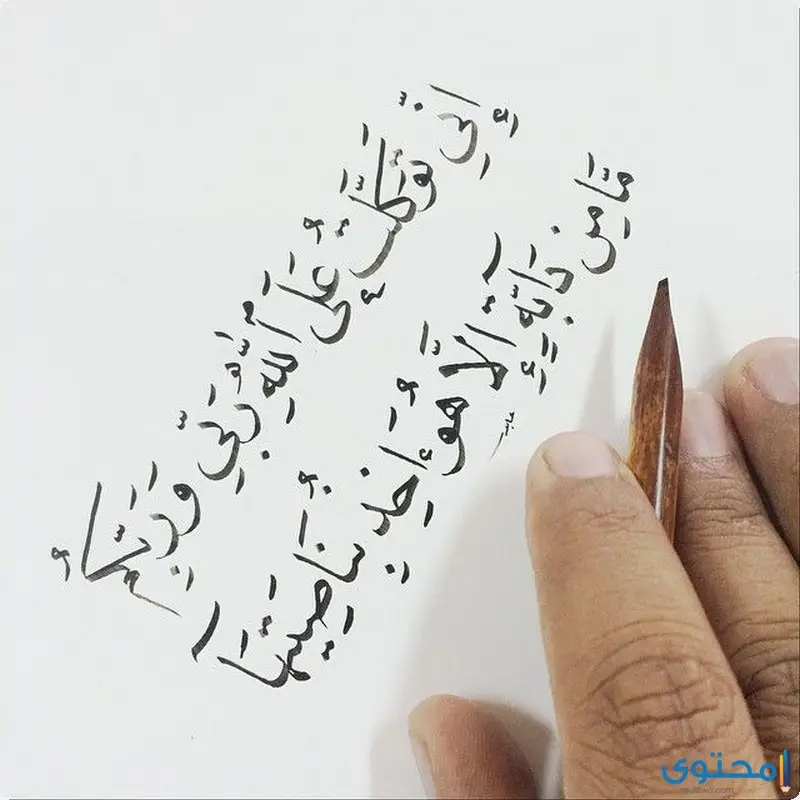 إِنِّي تَوَكَّلْتُ عَلَى اللَّهِ رَبِّي وَرَبِّكُمْ
مَا مِنْ دَابَّةٍ إِلَّا هُوَ آخِذٌ بِنَاصِيَتِهَا
محتوى